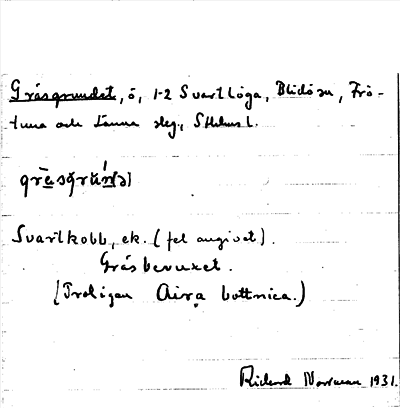 Gräsgrundet, ö, 1-2 Svartlöga, Blidö sn, Frö-
tuna och Länna slg., Sthlms l.
Svartkobb, ek. (fel angivet).
Gräsbevuxet.
(Troligen Aira bottnica.)
Rickard 1931.